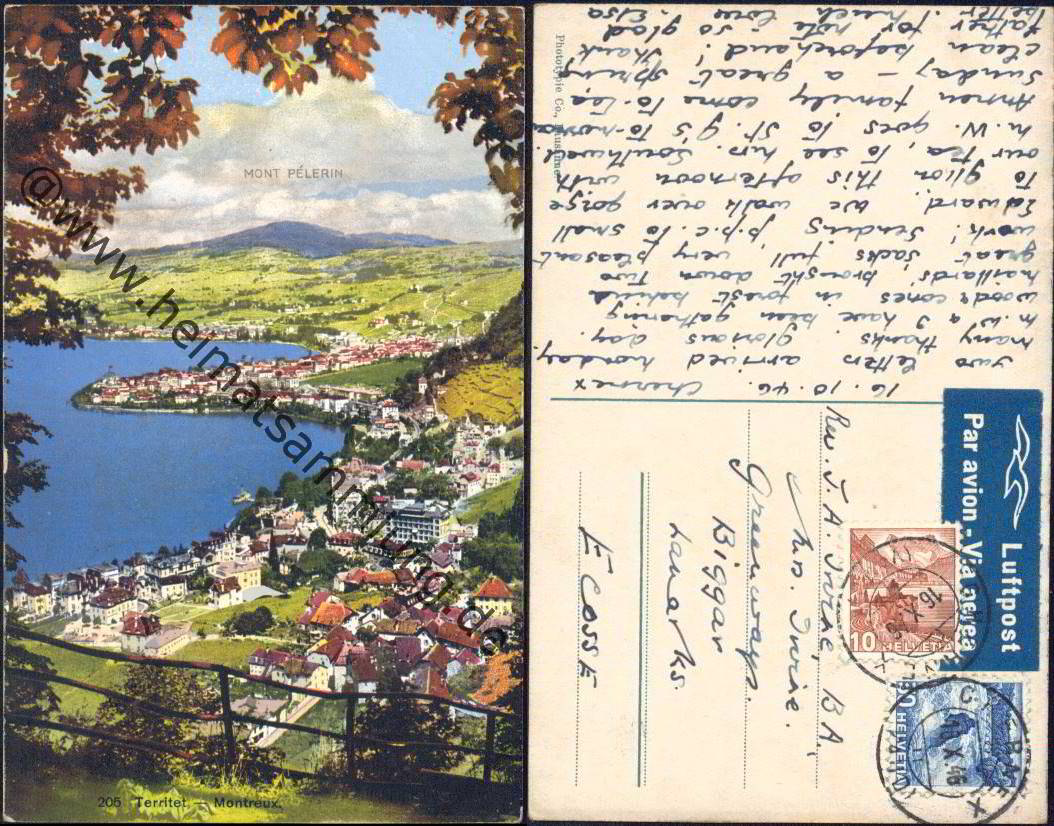 MONT PÉLERIN
@www.heimatsammlung.de
205 Territet. — Montreux.
Phototypie Co.,
16.10.46. Chernex
Two letters arrived Monday.
Many thanks. Glorious day.
M.W. & I have been gathering
wood & cones in forest behind
brought down two
great sacks full very pleasant
work! Sending p.p.c. to small
Edward. We walk over gorge
to Glion this afternoon with
our tea, to see Mrs.
M.W. goes to St. G's to-morrow
family come to tea
Sunday — a great spring
clean beforehand! Thank
Father for note so glad
better. Much love
Elsa
Par avion - Via aerea
Luftpost
10 HELVETIA
HELVETIA
Rev. J. A. Irvine, B.A.
Mrs. Irvine.
Greenways.
Biggar
Lanarks.
ECOSSE